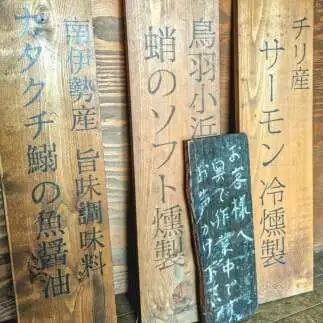 チリ産
サーモン冷燻製
お客様へ
奥で作業中です
お声かけ下さい
鳥羽小浜
蛸のソフト燻製
南伊勢産 旨味調味料
カタクチ鰯の魚醤油